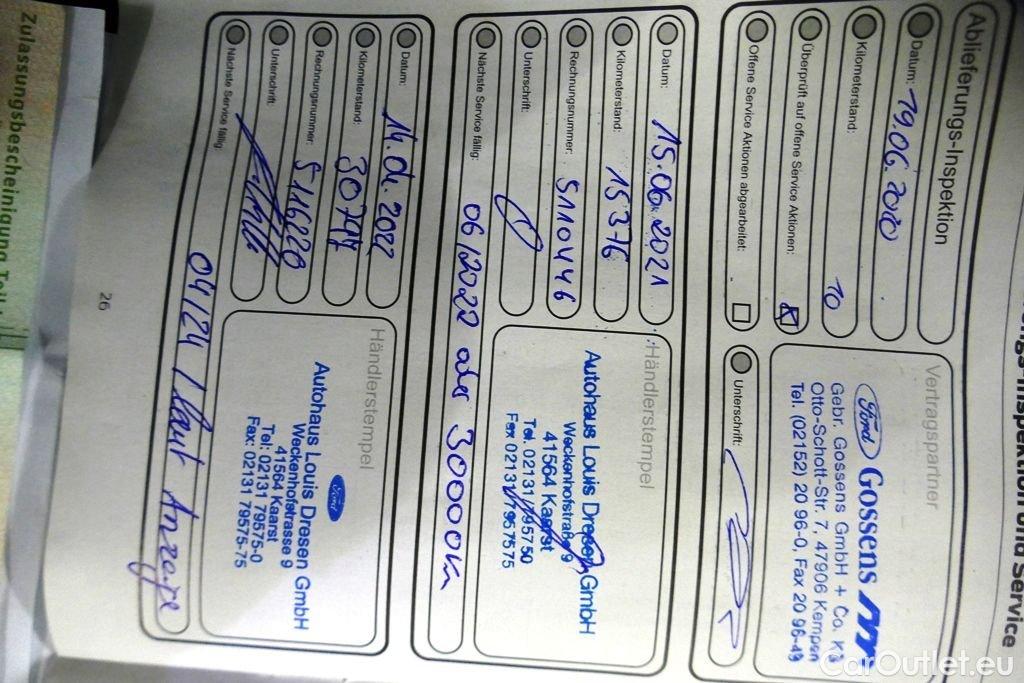 Service
Ablieferungs-Inspektion
Datum: 19.06.2020
Kilometerstand: 10
Überprüft auf offene Service Aktionen:
Offene Service Aktionen abgearbeitet:
Vertragspartner
Ford Gossens
Gebr. Gossens GmbH + Co. KG
Otto-Schott-Str. 7, 47906 Kempen
Tel. (02152) 20 96-0, Fax 20 96-49
Unterschrift:
Datum: 15.06.2021
Kilometerstand: 15376
Rechnungsnummer: S110446
Unterschrift:
Nächste Service fällig: 06/2022 oder 30000km
Händlerstempel
Autohaus Louis Dresen GmbH
Weckenhofstraße 9
41564 Kaarst
Tel. 02131/7957 50
Fax 02131/7957575
Datum: 14.04.2022
Kilometerstand:
Rechnungsnummer: S116220
Unterschrift:
Nächste Service fällig: 04/24 / laut Anzeige
Händlerstempel
Ford
Autohaus Louis Dresen GmbH
Weckenhofstrasse 9
41564 Kaarst
Tel: 02131 79575-0
Fax: 02131 79575-75
26
Zulassungsbescheinigung Teil
CarOutlet.eu